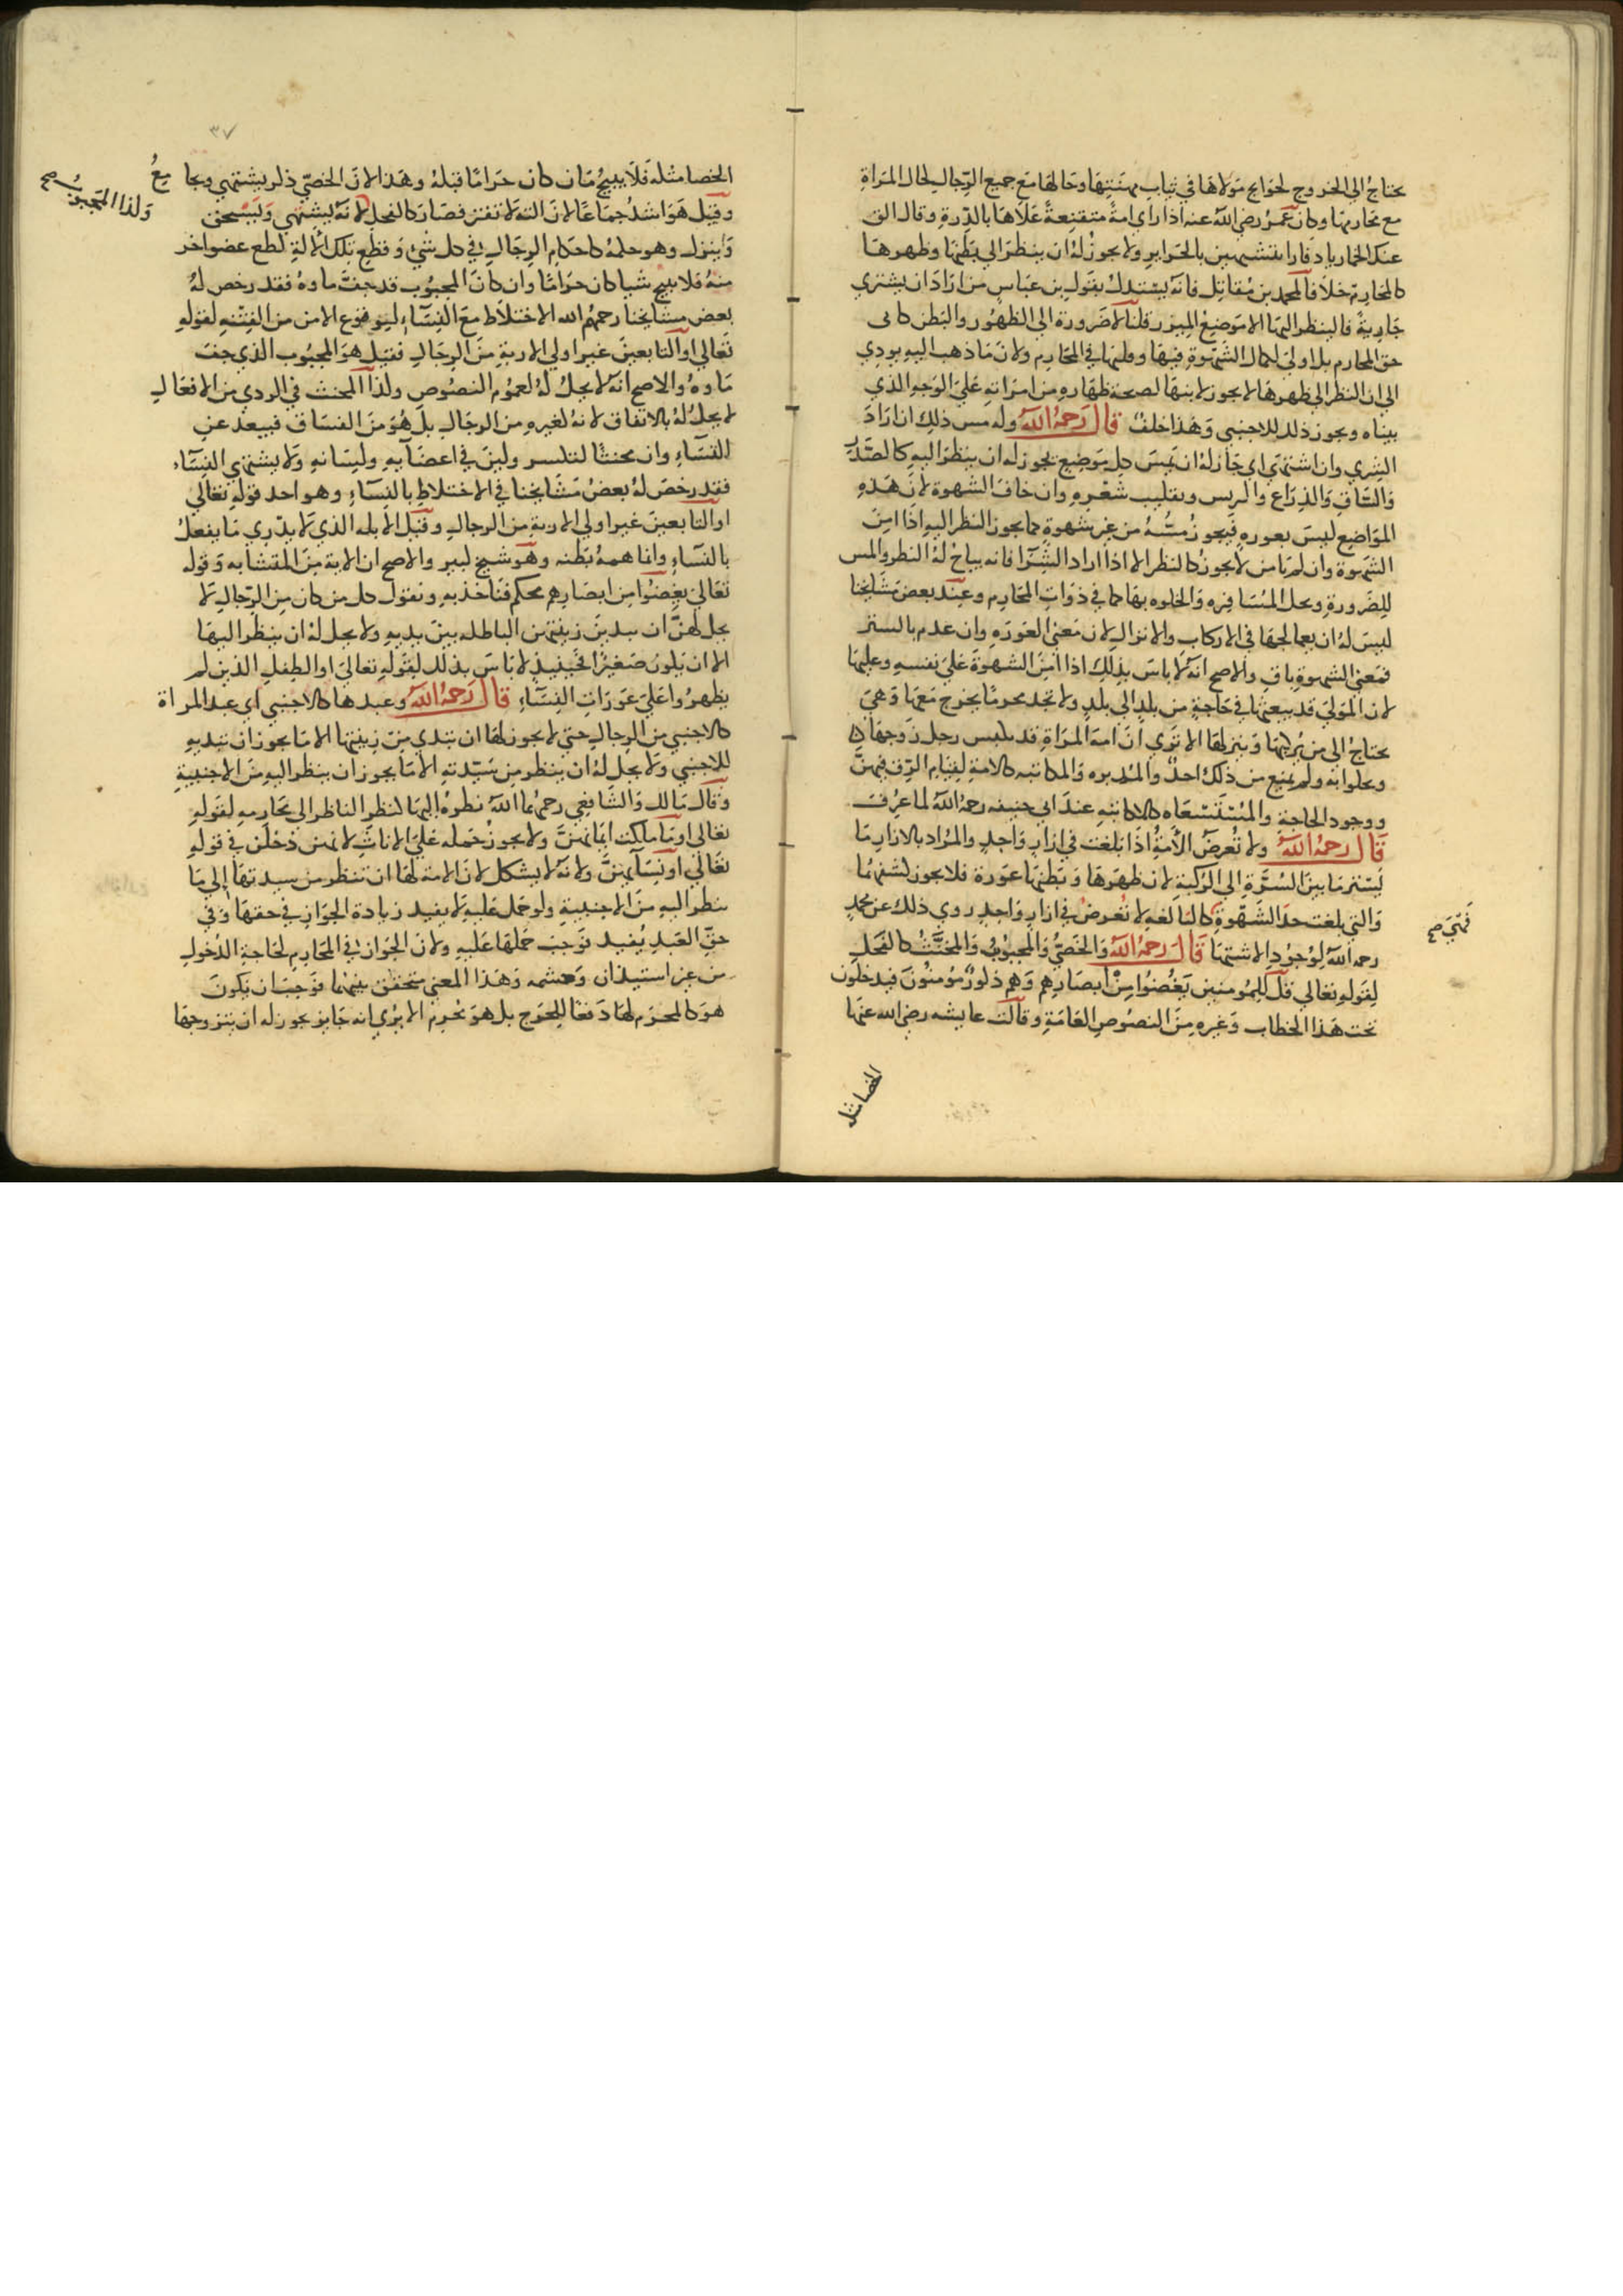 يحتاج الى الخروج لحوايج مولاها في ثياب مهنتها وحالها مع جميع الرجال كحال المراة
مع محارمها وكان عمر رضي الله عنه اذا راى امة متقنعة علاها بالدرة وقال الق
عنك الخمار يا دفار اتتشبهين بالحراير ولا يجوز له ان ينظر الى بطنها وظهرها
كالمحارم خلافا لمحمد بن مقاتل فانه يستدل بقول بن عباس من اراد ان يشتري
جارية فالينظر اليها الا موضع الميزر قلنا لا ضرورة الى الظهور والبطن كما في
حق المحارم بل اولى لكمال الشهوة فيها وقلتها في المحارم ولان ما ذهب اليه يودي
الى ان النظر الى ظهرها لا يجوز لابنها لصحة ظهاره من امراته على الوجه الذي
بيناه ويجوز ذلك للاجنبي وهذا خلف قال رحمه الله وله مس ذلك ان اراد
الشري وان اشتهى اي جاز له ان يمس كل موضع يجوز له ان ينظر اليه كالصدر
والساق والذراع والريس ويقليب شعره وان خاف الشهوة لان هذه
المواضع ليس بعوره فيجوز مسه من غير شهوة كما يجوز النظر اليه اذا امن
الشهوة وان لم يامن لا يجوز كالنظر الا اذا اراد الشرا فانه يباح له النظر والمس
للضرورة ويحل المسافره والخلوه بها كما في ذوات المحارم وعند بعض مشايخنا
ليس له ان يعالجها في الاركاب والانزال لان معنى العوره وان عدم بالستر
فمعنى الشهوة باق والاصح انه لا باس بذلك اذا امن الشهوة على نفسه وعليها
لان المولى قد يبعثها في حاجة من بلد الى بلد ولا تجد محرما يخرج معها وهي
يحتاج الى من يركبها وينزلها الا ترى ان امة المراة قد تلمس رجل زوجها
ويخلوا به ولم يمنع من ذلك احد والمدبره والمكاتبه كالامة لقيام الرق فيهن
ووجود الحاجة والمستسعاه كالمكاتبه عند ابي حنيفه رحمه الله لما عرف
قال رحمه الله ولا تعرض الامة اذا بلغت في ازار واحد والمراد بالازار ما
يستر ما بين السرة الى الركبة لان ظهرها وبطنها عورة فلا يجوز كشفهما
والتي بلغت حد الشهوة كالبالغه لا تعرض في ازار واحد روي ذلك عن محمد
فهي صح
رحمه الله لوجود الاشتها قال رحمه الله والخصي والمجبوب والمخنث كالفحل
لقوله تعالى قل للمومنين يغضوا من ابصارهم وهم ذكور مومنون فيدخلون
تحت هذا الخطاب وغيره من النصوص العامة وقالت عايشه رضي الله عنها
الخصا مثله
٣٧
الخصا مثله فلا يبيح ما ن كان حراما قبله وهذا لان الخصي ذكر يشتهي ويجامع
ولذا المجبوب صح
وقيل هو اشد جماعا لان الته لا تفتر فصار كالفحل لانه يشتهي ويسحق
وينزل وهو حكمه كاحكام الرجال في كل شي وقطع تلك الالة كقطع عضو اخر
منه فلا يبيح شيا كان حراما وان كان المجبوب قد جف ماوه فقد رخص له
بعض مشايخنا رحمهم الله الاختلاط مع النساء لوقوع الامن من الفتنه لقوله
تعالى او التابعين غير اولي الاربة من الرجال فقيل هو المجبوب الذي جف
ماوه والاصح انه لا يحل له لعموم النصوص ولذا المخنث في الردي من الافعال
لا يحل له بالاتفاق لانه لغيره من الرجال بل هو من الفساق فيبعد عن
النساء وان مخنثا لتكسر ولين في اعضايه ولسانه ولا يشتهي النساء
فقد رخص له بعض مشايخنا في الاختلاط بالنساء وهو احد قوله تعالى
او التابعين غير اولي الاربة من الرجال وقيل الابله الذي لا يدري ما يفعل
بالنساء وانما همه بطنه وهو شيخ كبير والاصح ان الاية من المتشابه وقوله
تعالى يغضوا من ابصارهم محكم فناخذ به ونقول كل من كان من الرجال لا
يحل لهن ان يبدين زينتهن الباطله بين يديه ولا يحل له ان ينظر اليها
الا ان يكون صغيرا فحينيذ لا باس بذلك لقوله تعالى او الطفل الذين لم
يظهروا على عورات النساء قال رحمه الله وعبدها كالاجنبي اي عبد المراة
كالاجنبي من الرجال حتى لا يجوز لها ان تبدي من زينتها الا ما يجوز ان تبديه
للاجنبي ولا يحل له ان ينظر من سيدته الا ما يجوز ان ينظر اليه من الاجنبية
وقال مالك والشافعي رحمهما الله نظره اليها كنظر الناظر الى محارمه لقوله
تعالى او ما ملكت ايمانهن ولا يجوز حمله على الاناث لانهن دخلن في قوله
تعالى او نسآيهن ولانه لا يشكل لان الامة لها ان تنظر من سيدتها الى ما
ينظر اليه من الاجنبية ولو حمل عليه لا يفيد زيادة الجواز في حقها وفي
حق العبد يفيد فوجب حملها عليه ولان الجواز في المحارم لحاجة الدخول
من غير استيذان وحشمه وهذا المعنى متحقق بينهما فوجب ان يكون
هو كالمحرم لها دفعا للحرج بل هو محرم الا يرى انه جايز يجوز له ان يتزوجها